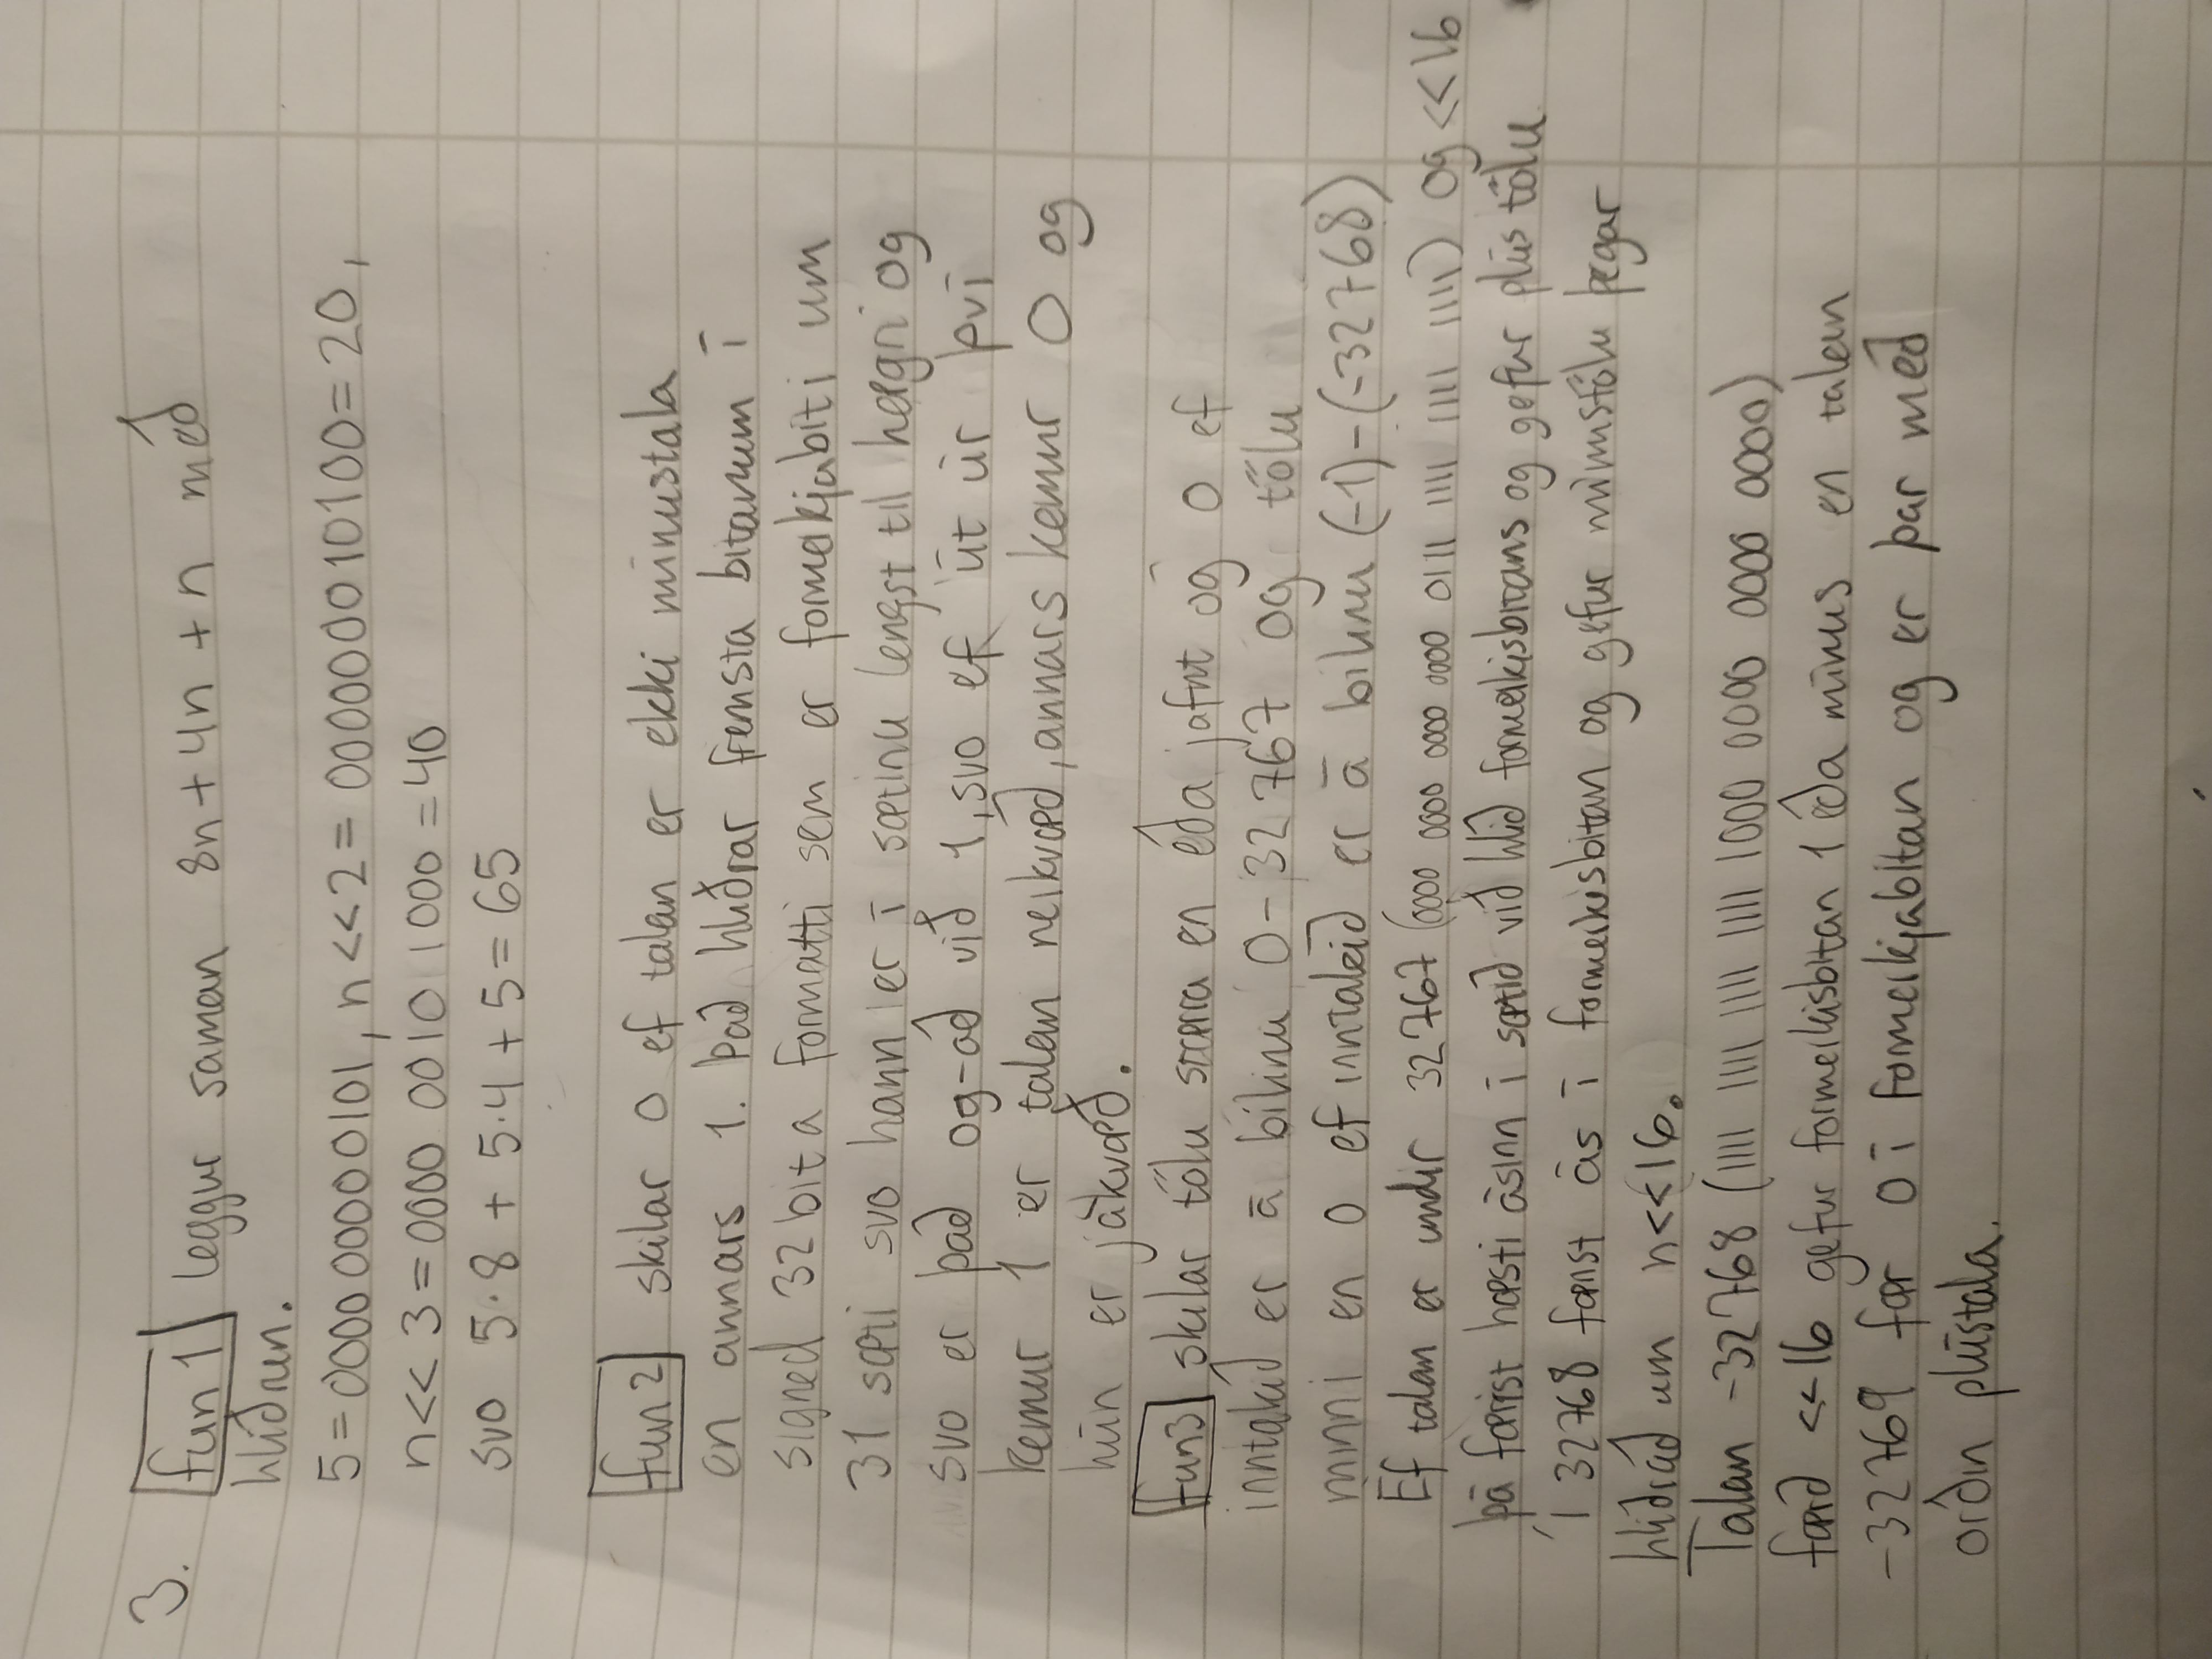 3. fun 1 leggur saman 8n + 4n + n með
hliðrun.
5 = 0000 00000101, n << 2 = 000000010100 = 20,
n << 3 = 0000 0010 1000 = 40
svo 5·8 + 5·4 + 5 = 65
fun 2 skilar 0 ef talan er ekki mínustala
en annars 1. Það hliðrar fremsta bitanum í
signed 32 bita formatti sem er formerkjabiti um
31 sæti svo hann er í sætinu lengst til hægri og
svo er það og-að við 1, svo ef út úr því
kemur 1 er talan neikvæð, annars kemur 0 og
hún er jákvæð.
fun3 skilar tölu stærra en eða jafnt og 0 ef
inntakið er á bilinu 0 - 32 767 og tölu
minni en 0 ef inntakið er á bilinu (-1) - (-32768)
Ef talan er undir 32767 (0000 0000 0000 0000 0111 1111 1111 1111) og << 16
þá færist hæsti ásinn í sætið við hlið formerkisbitans og gefur plús tölu
Í 32768 færist ás í formerkisbitan og gefur mínustölu þegar
hliðrað um n<<16.
Talan -32768 (1111 1111 1111 1111 1000 0000 0000 0000)
færð <<16 gefur formerkisbitan 1 eða mínus en talan
-32769 fær 0 í formerkjabitan og er þar með
orðin plústala.